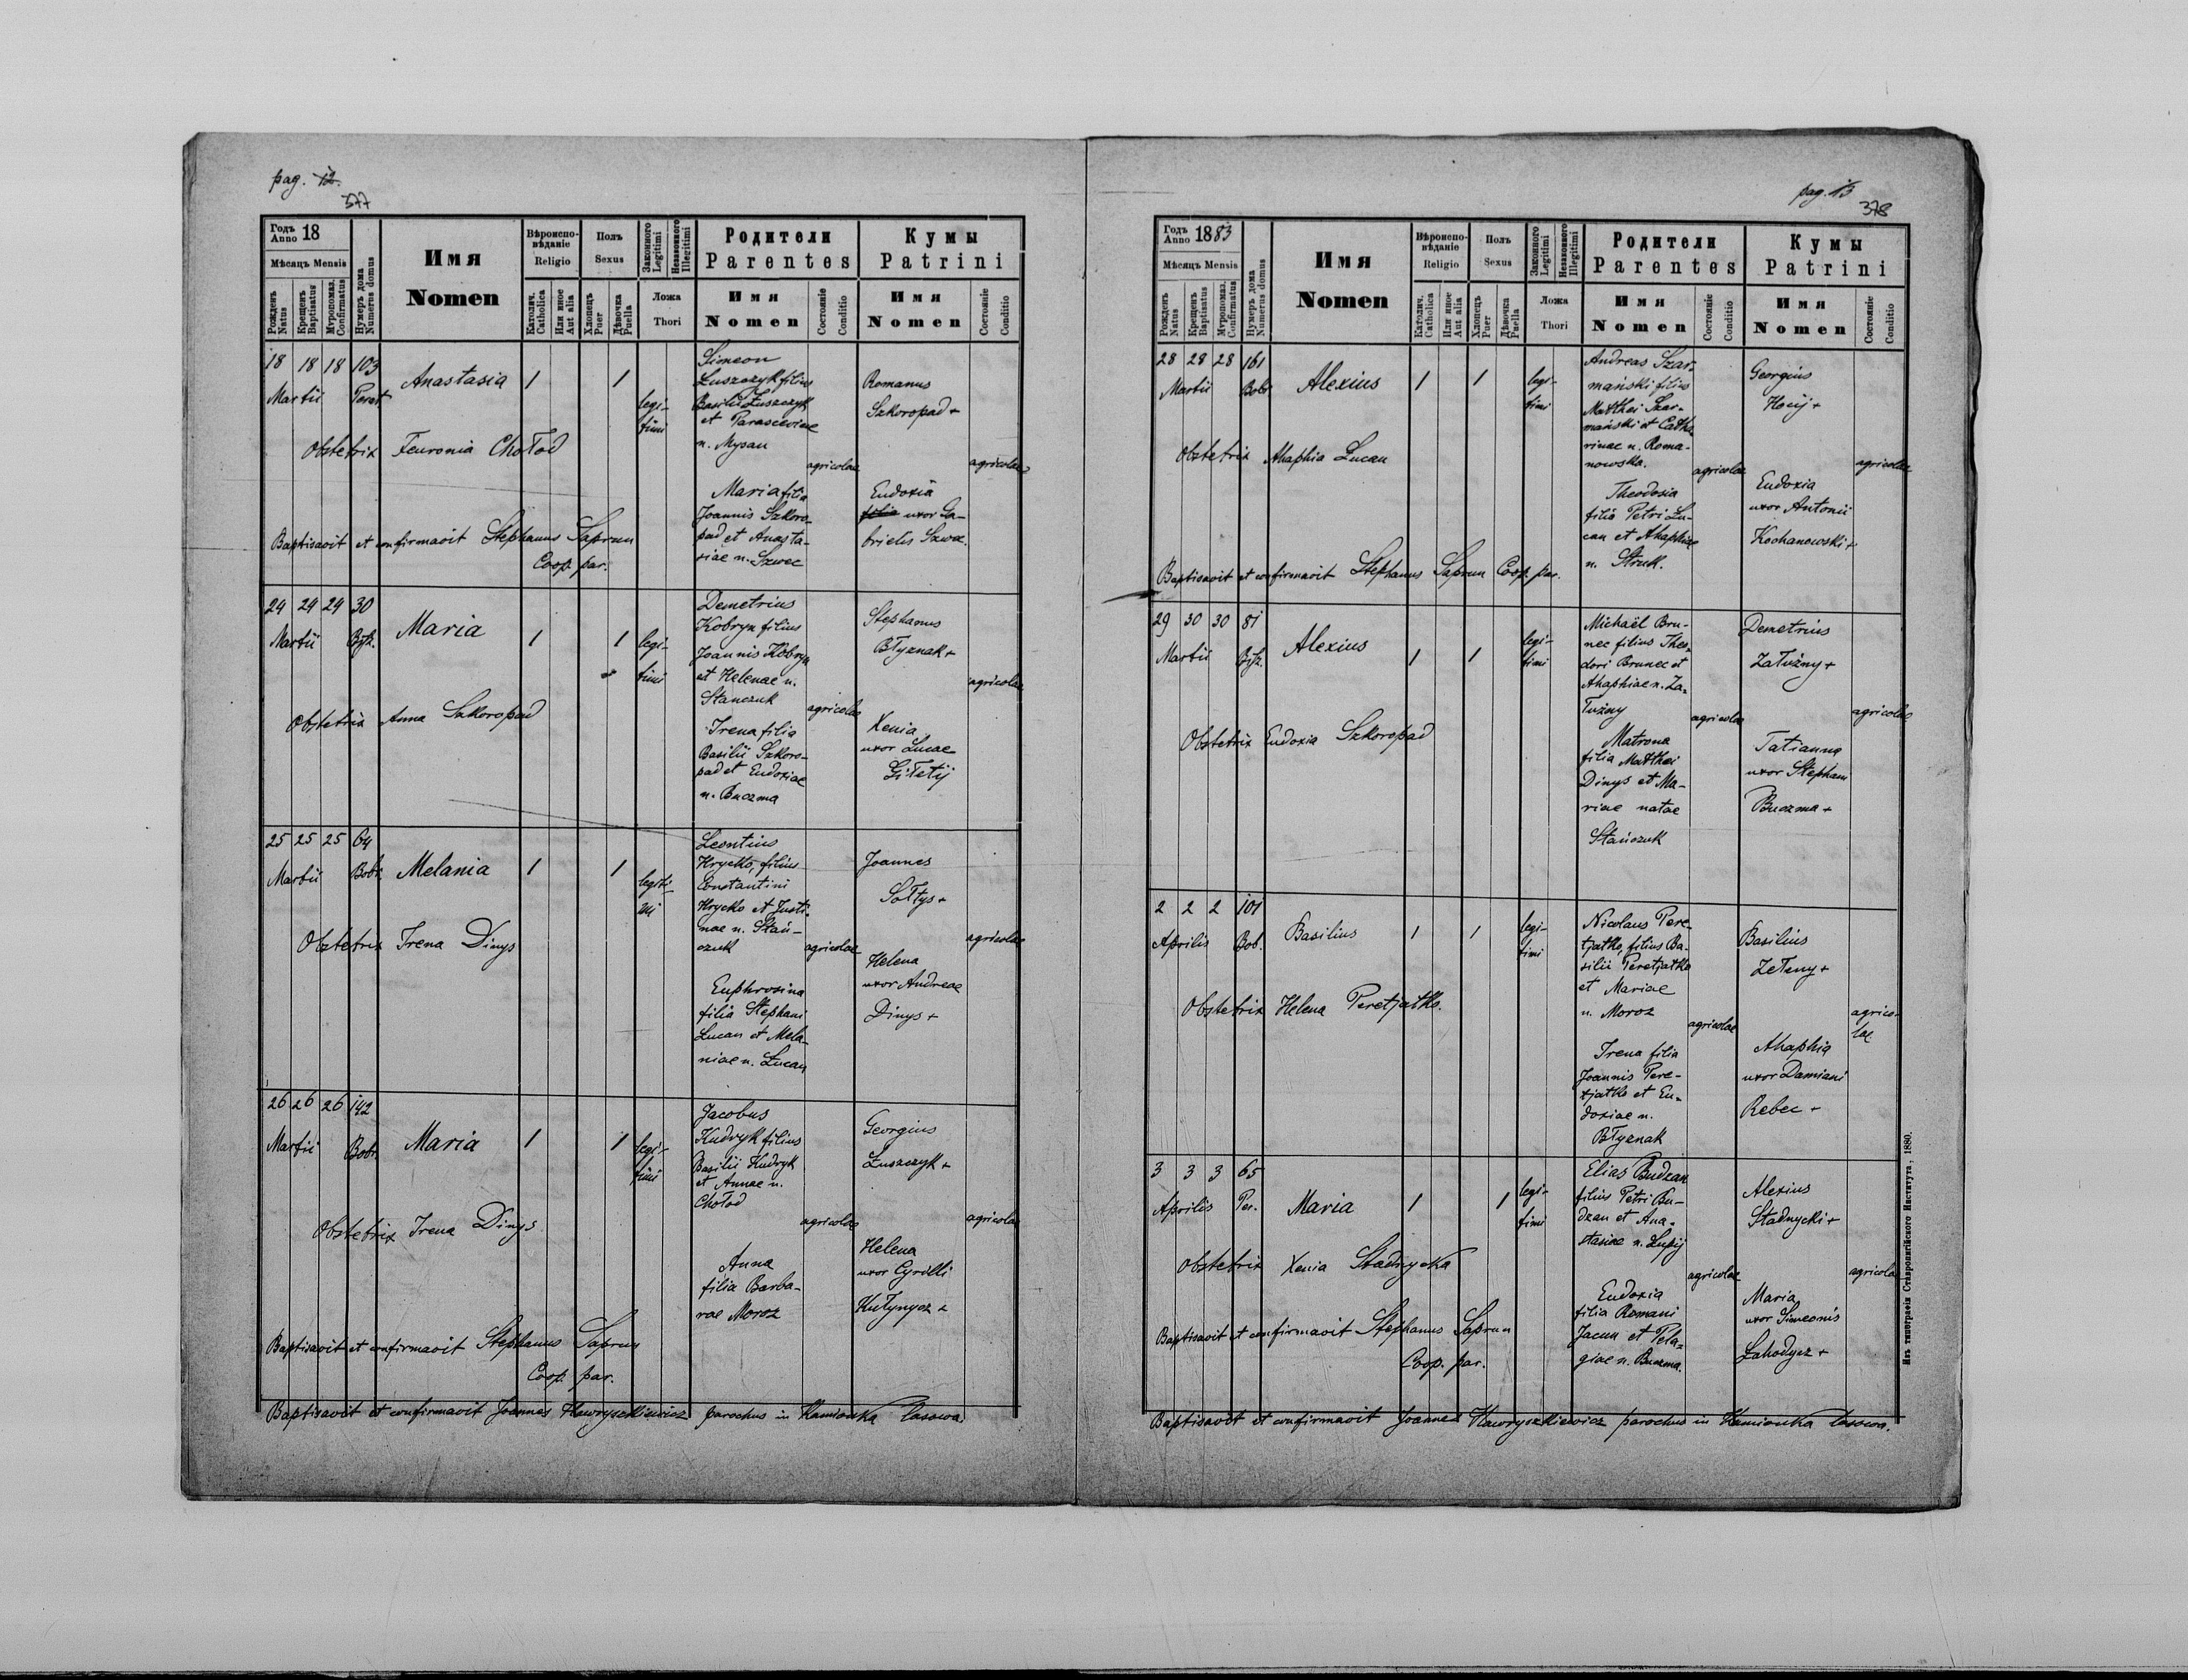 pag. 12.
377
Годъ
Anno 18
Мѣсяцъ Mensis
Рожденъ
Natus
Крещенъ
Baptisatus
Мѵропомаз.
Confirmatus
Нумеръ дома
Numerus domus
Имя
Nomen
Вѣроиспо-
вѣданіе
Religio
Католич.
Catholica
Или иное
Aut alia
Полъ
Sexus
Хлопецъ
Puer
Дѣвочка
Puella
Законного
Legitimi
Незаконного
Illegitimi
Ложа
Thori
Родители
Parentes
Имя
Nomen
Состояніе
Conditio
Кумы
Patrini
Имя
Nomen
Состояніе
Conditio
18 18 18 103
Martii Peret
Anastasia 1 1
legi-
timi
Simeon
Łuszczyk filius
Basilii Łuszczyk
et Parasceviae
n. Mysan
agricolae
Maria filia
Joannis Szkoro-
pad et Anasta-
siae n. Szwec
Romanus
Szkoropad +
agricolae
Eudoxia
filia uxor Ga-
brielis Szwec.
Obstetrix Feuronia Chołod
Baptisavit et confirmavit Stephanus Saprun
Coop. par.
24 24 24 30
Martii Bżz.
Maria 1 1
legi-
timi
Demetrius
Kobryn filius
Joannis Kobryn
et Helenae n.
Stanczuk
agricolae
Irena filia
Basilii Szkoro-
pad et Eudoxiae
n. Buczma
Stephanus
Błyznak +
agricolae
Xenia
uxor Lucae
Giłetij
Obstetrix Anna Szkoropad
25 25 25 64
Martii Bobr.
Melania 1 1
legiti-
mi
Leontius
Hrycko, filius
Constantini
Hrycko et Justi-
nae n. Stań-
czuk
agricolae
Euphrosina
filia Stephani
Lucan et Mela-
niae n. Lucan
Joannes
Sołtys +
agricolae
Helena
uxor Andreae
Dinys +
Obstetrix Irena Dinys
26 26 26 142
Martii Bobr.
Maria 1 1
legi-
timi
Jacobus
Kudryk filius
Basilii Kudryk
et Annae n.
Chołod
agricolae
Anna
filia Barba-
rae Moroz
Georgius
Łuszczyk +
agricolae
Helena
uxor Cyrilli
Kułynycz +
Obstetrix Irena Dinys
Baptisavit et confirmavit Stephanus Saprun
Coop. par.
Baptisavit et confirmavit Joannes Hawryszkiewicz parochus in Kamionka lasowa.
pag. 13
378
Годъ
Anno 1883
Мѣсяцъ Mensis
Рожденъ
Natus
Крещенъ
Baptisatus
Мѵропомаз.
Confirmatus
Нумеръ дома
Numerus domus
Имя
Nomen
Вѣроиспо-
вѣданіе
Religio
Католич.
Catholica
Или иное
Aut alia
Полъ
Sexus
Хлопецъ
Puer
Дѣвочка
Puella
Законного
Legitimi
Незаконного
Illegitimi
Ложа
Thori
Родители
Parentes
Имя
Nomen
Состояніе
Conditio
Кумы
Patrini
Имя
Nomen
Состояніе
Conditio
28 28 28 161
Martii Bobr
Alexius 1 1
legi-
timi
Andreas Szar-
mański filius
Matthei Szar-
mański et Catha-
rinae n. Roma-
nowska.
agricolae
Theodosia
filia Petri Lu-
can et Ahaphiae
n. Struk.
Georgius
Hocij +
agricolae
Eudoxia
uxor Antonii
Kochanowski +
Obstetrix Ahaphia Lucan
Baptisavit et confirmavit Stephanus Saprun Coop. par.
29 30 30 81
Martii Bżz.
Alexius 1 1
legi-
timi
Michaël Bru-
nec filius Theo-
dori Brunec et
Ahaphiae n. Za-
łużny
agricolae
Matrona
filia Matthei
Dinys et Ma-
riae natae
Stańczuk
Demetrius
Załużny +
agricolae
Tatianna
uxor Stephani
Buczma +
Obstetrix Eudoxia Szkoropad
2 2 2 101
Aprilis Bob.
Basilius 1 1
legi-
timi
Nicolaus Pere-
tjatko, filius Ba-
silii Peretjatko
et Mariae
n. Moroz
agricolae
Irena filia
Joannis Pere-
tjatko et Eu-
doxiae n.
Błyznak
Basilius
Zełeny +
agrico-
lae
Ahaphia
uxor Damiani
Rebec +
Obstetrix Helena Peretjatko.
3 3 3 65
Aprilis Per.
Maria 1 1
legi-
timi
Elias Budzan
filius Petri Bu-
dzan et Ana-
stasiae n. Łupij
agricolae
Eudoxia
filia Romani
Jacun et Pela-
giae n. Buczma.
Alexius
Stadnycki +
agricolae
Maria
uxor Simeonis
Łahodycz +
Obstetrix Xenia Stadnycka
Baptisavit et confirmavit Stephanus Saprun
Coop. par.
Baptisavit et confirmavit Joannes Hawryszkiewicz parochus in Kamionka lasowa.
Изъ типографіи Ставропигійского Института, 1880.